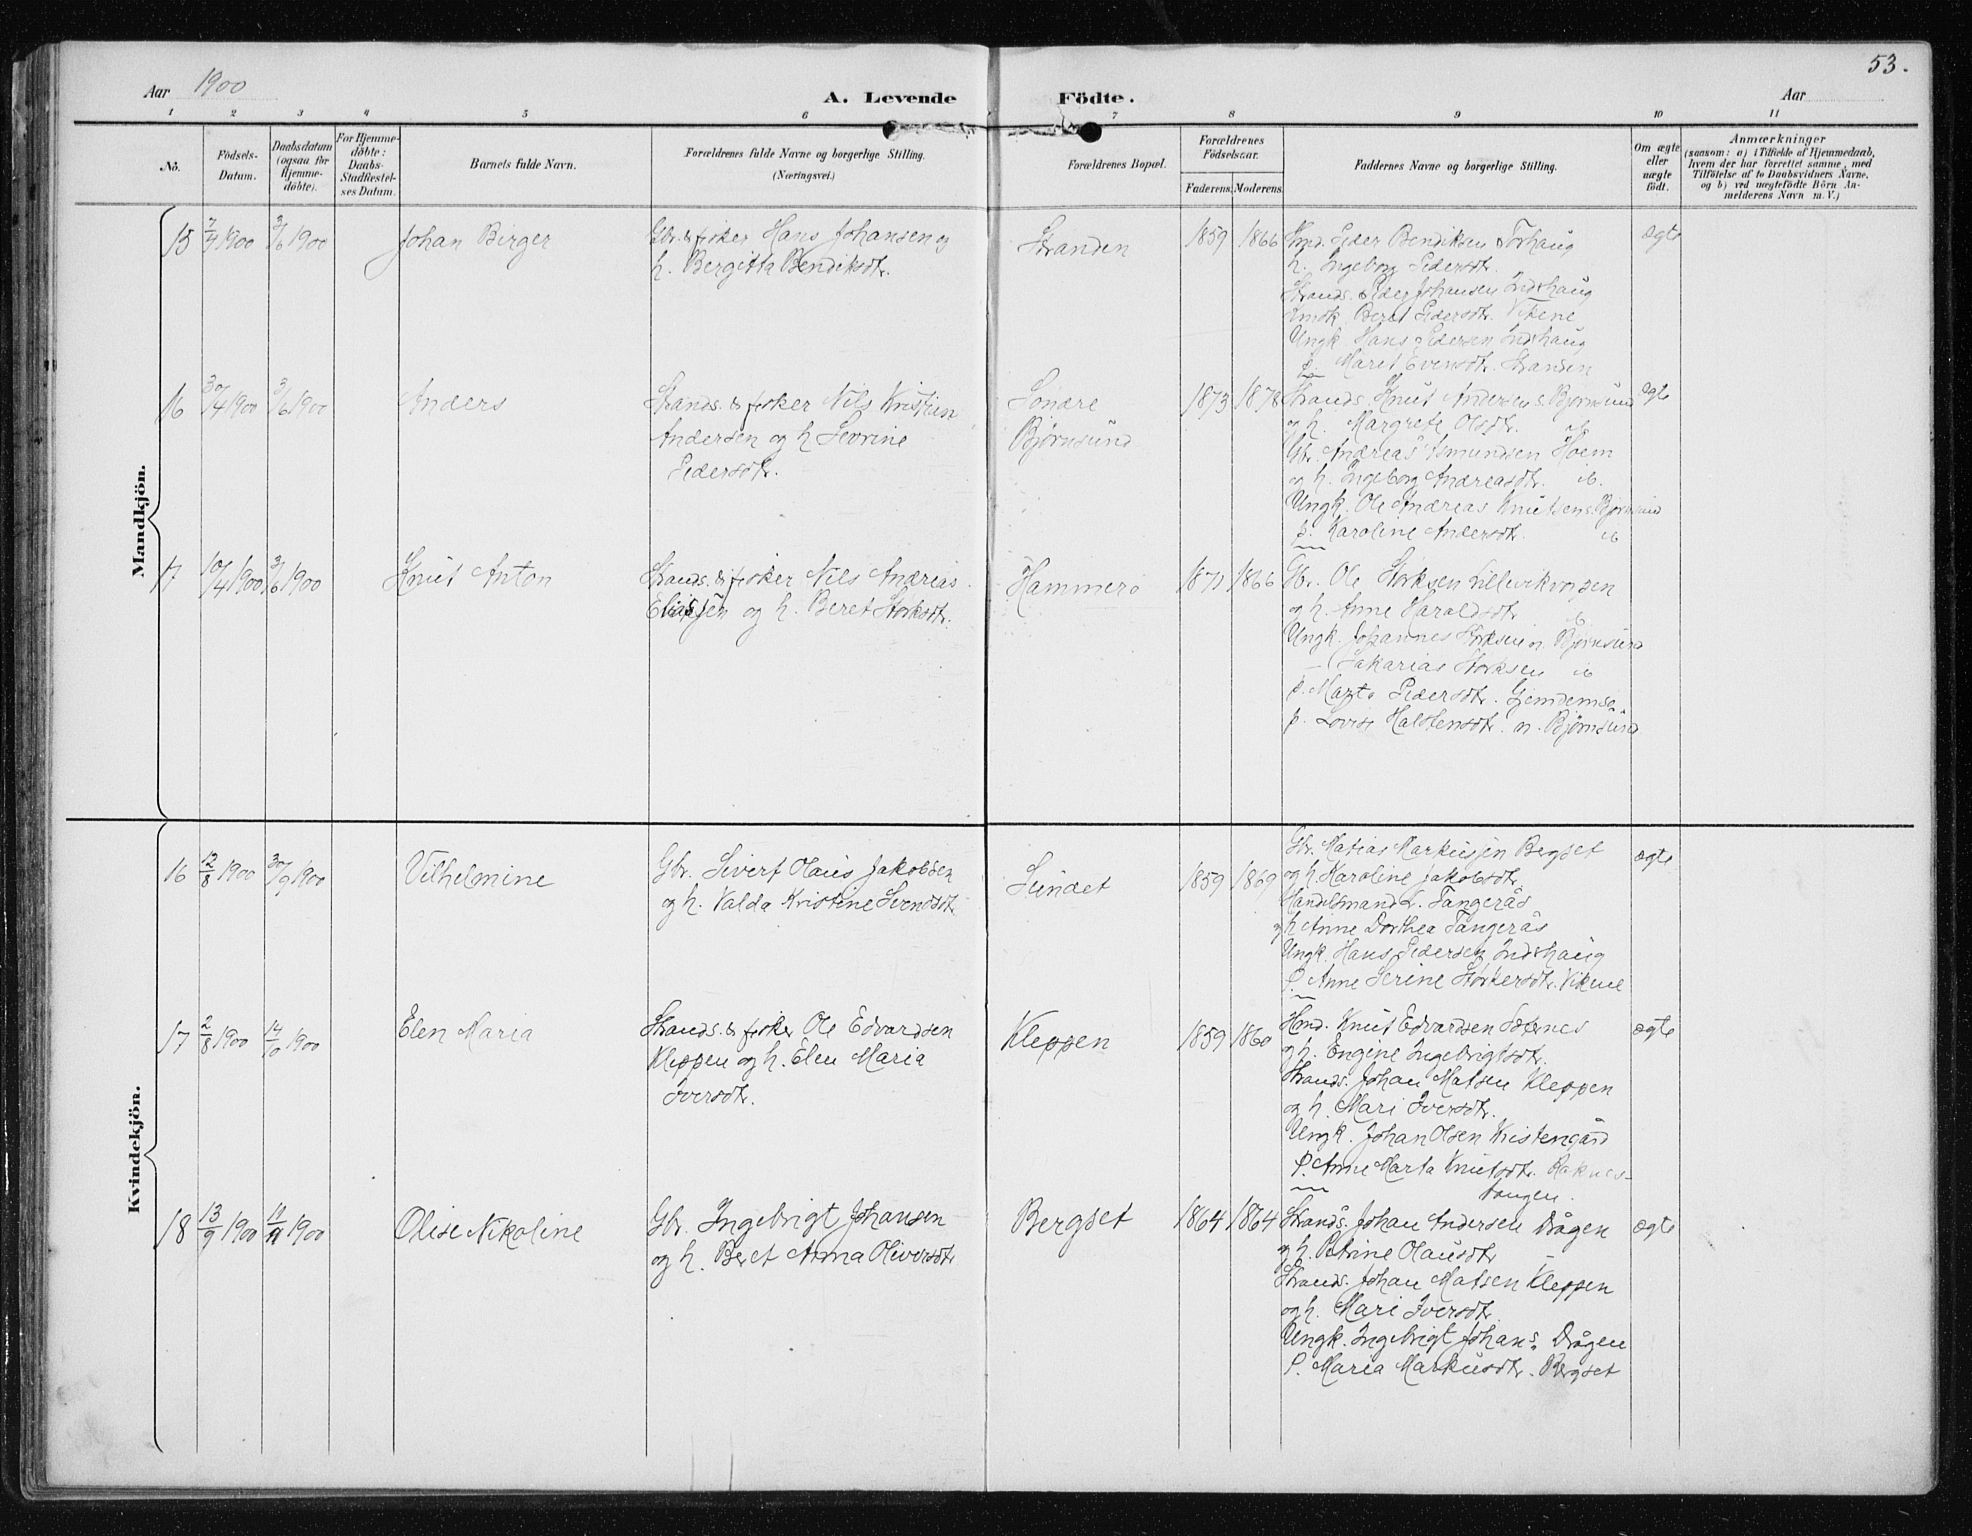 53.
Aar 1900
A. Levende Födte.
Aar
1 2 3 4 5 6 7 8 9 10 11
No.
Födsels-Datum.
Daabsdatum (ogsaa for Hjemme-døbte).
For Hjemme-døbte: Daabs-Stadfæstel-ses Datum.
Barnets fulde Navn.
Forældrenes fulde Navne og borgerlige Stilling.
(Næringsvei.)
Forældrenes Bopæl.
Forældrenes Födselsaar.
Faderens. Moderens.
Faddernes Navne og borgerlige Stilling.
Om ægte eller uægte födt.
Anmærkninger
(saasom: a) i Tilfælde af Hjemmedaab,
hvem der har forrettet samme, med
Tilföielse af to Daabsvidners Navne.
og b) ved uægtefödte Börn An-
melderens Navn m. V.)
Mandkjön.
15 7/4 1900 3/6 1900 Johan Birger
Gbr. & fisker Hans Johansen og
h. Bergitta Bendiksdtr.
Stranden
1859 1866
Hmd. Peder Bendiksen Torhaug
h. Ingeborg Pedersdtr.
Strands. Peder Johansen Indhaug
Beret Pedersdtr. Vikene
Ungk. Hans Pedersen Indrhaug
p. Maret Evensdtr. Stranden
ægte
16 30/4 1900 3/6 1900 Anders
Strands. & fisker Nils Kristian
Andersen og h. Severine
Pedersdtr.
Søndre
Bjørnsund
1873 1878
Strands. Knut Andersen s. Bjørnsund
og h. Margrete Olsdtr. ib
Gbr. Andreas Asmundsen Hoem
og h. Ingeborg Andreasdtr. ib.
Ungk. Ole Andreas Knutsen s. Bjørnsund
p. Karoline Andersdtr. ib
ægte
17 10/4 1900 3/6 1900 Knut Anton
Strands. & fisker Nils Andreas
Eliassen og h. Beret Storksdtr.
Hammerø
1871 1866
Gbr. Ole Storksen Lillevikvorpen
og h. Anne Haraldsdtr. ib
Ungk. Johannes Storksen n. Bjørnsund
— Sakarias Storksen ib
p. Marta Pedersdtr. Gjendemsø
p. Lovise Halstensdtr. n. Bjørnsund
Kvindekjön.
16 12/8 1900 30/9 1900 Vilhelmine
Gbr. Sivert Olaus Jakobsen
og h. Valda Kristine Svendsdtr.
Sundet
1859 1869
Gbr. Matias Markussen Bergset
og h. Karoline Jakobsdtr.
Handelsmand L. Tangerås
og h Anne Dorthea Tangerås
Ungk. Hans Pedersen Indrhaug
P. Anne Serine Storkersdtr. Vikene
ægte
17 2/8 1900 14/10 1900 Elen Maria
Strands. & fisker Ole Edvardsen
Kleppen og h. Elen Maria
Iversdtr.
Kleppen
1859 1860
Hmd. Knut Edvardsen Sæternes
og h. Engine Ingebrigtsdtr.
Strands. Johan Matsen Kleppen
og h. Mari Iversdtr.
Ungk. Johan Olsen Kristengård
P. Anne Marta Knutsdtr. Raknes-
tangen.
ægte
18 13/9 1900 11/11 1900 Olise Nikoline
Gbr. Ingebrigt Johansen
og h. Beret Anna Oliversdtr.
Bergset
1864 1864
Strands. Johan Andersen Drågen
og h. Petrine Olausdtr
Strands. Johan Matsen Kleppen
og h. Mari Iversdtr.
Ungk. Ingebrigt Johans. Drågen
P. Maria Markusdtr. Bergset
ægte